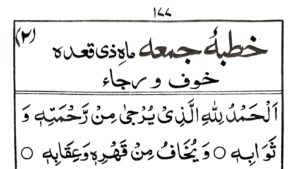 ۱۷۷
(۲)
خطبۂ جمعہ ماہِ ذی قعدہ
خوف و رجاء
اَلْحَمْدُ لِلّٰهِ الَّذِیْ یُرْجٰی مِنْ رَّحْمَتِهٖ وَ
ثَوَابِهٖ ○ وَیُخَافُ مِنْ قَهْرِهٖ وَعِقَابِهٖ ○